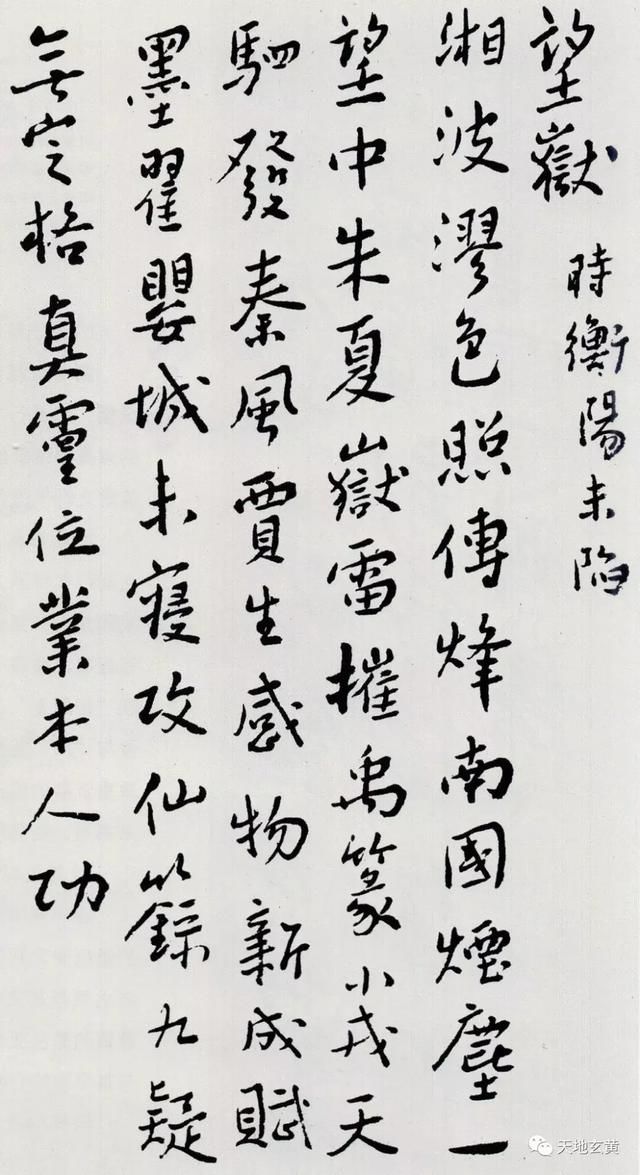 望嶽 時衡陽未陷
湘波漻色照傳烽南國煙塵一
望中朱夏嶽雷摧禹篆小戎天
駟發秦風賈生感物新成賦
墨翟嬰城未寢攻仙籙九疑
無定格真靈位業本人功
天地玄黄